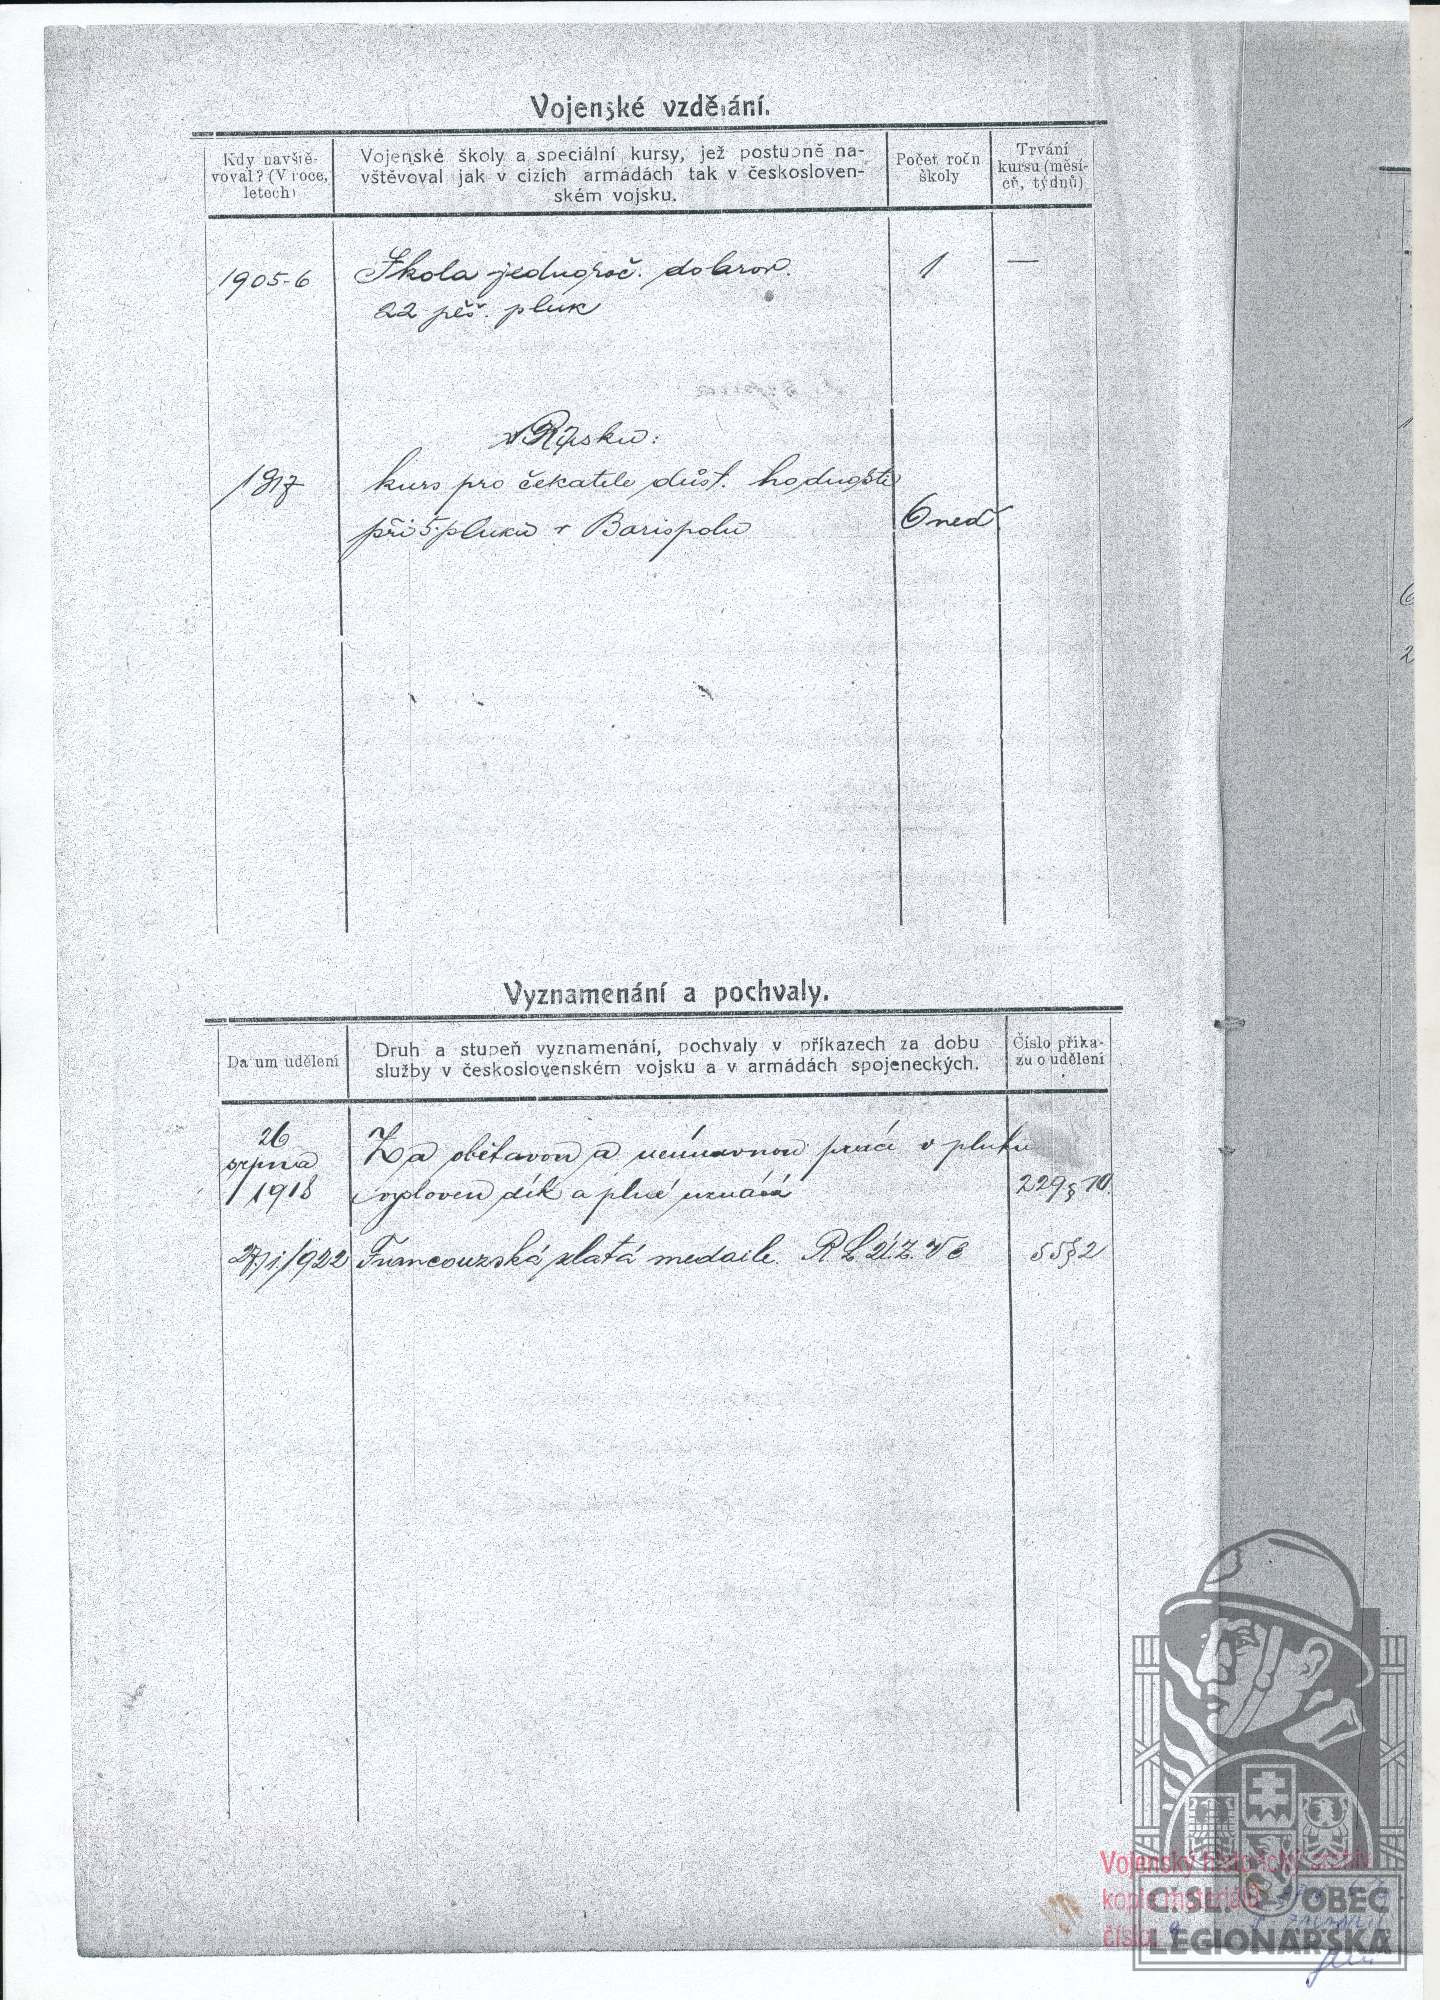 Vojenské vzdělání.
Kdy navště-
voval? (V roce,
letech)
Vojenské školy a speciální kursy, jež postupně na-
vštěvoval jak v cizích armádách tak v českosloven-
ském vojsku.
Počet ročn
školy
Trvání
kursu (měsí-
ců, týdnů)
1905-6
Škola jednoroč. dobrov.
1
—
22 pěš. pluk
v Rusku:
1917
kurs pro čekatele důst. hodnosti
při 5. pluku v Barispolu
6 ned
Vyznamenání a pochvaly.
Da um udělení
Druh a stupeň vyznamenání, pochvaly v příkazech za dobu
služby v československém vojsku a v armádách spojeneckých.
Číslo příka-
zu o udělení
26
srpna
1918
Za obětavou a neúnavnou práci v pluku
vysloven dík a plné uznání
229 § 10.
27./1./1922
Francouzská zlatá medaile.
55 § 2
Vojenský historický archiv
kopie materiálu
číslo
ČSL. OBEC
LEGIONÁŘSKÁ